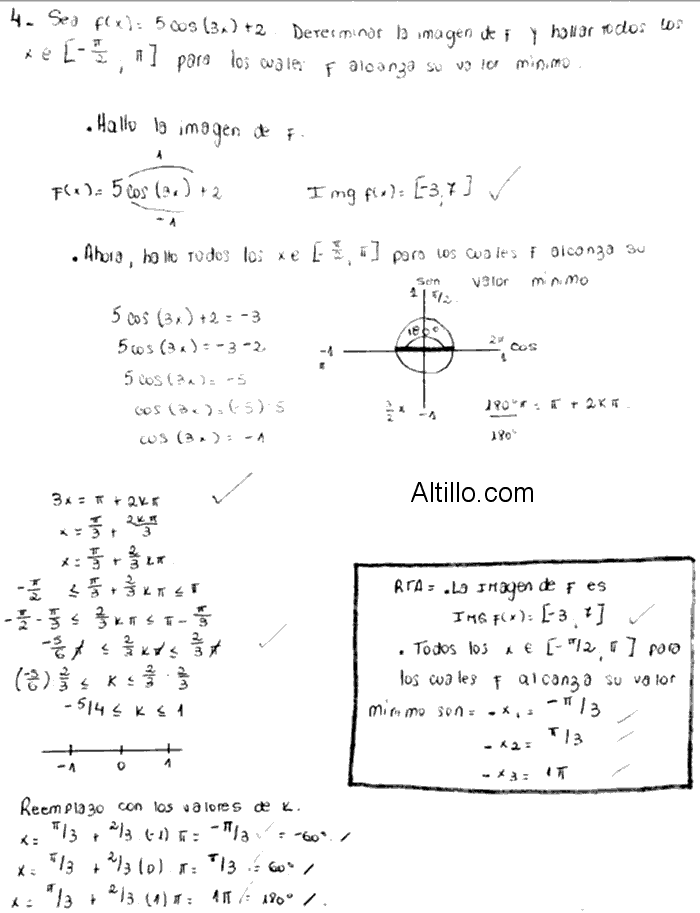 4- Sea f(x)= 5cos(3x)+2. Determinar la imagen de F y hallar todos los
x ∈ [-π/2, π] para los cuales F alcanza su valor mínimo.
• Hallo la imagen de F.
1
F(x)= 5cos(3x)+2 Img f(x)= [-3,7] ✓
-1
• Ahora, hallo todos los x ∈ [-π/2, π] para los cuales F alcanza su
valor mínimo
sen
1 π/2
180°
-1 2π cos
π 1
3/2 x -1
5cos(3x)+2=-3
5cos(3x)=-3-2
5cos(3x)=-5
cos(3x)=(-5):5
cos(3x)=-1
180°π = π + 2kπ.
180°
3x = π + 2kπ ✓
x = π/3 + 2kπ/3
x = π/3 + 2/3 kπ
-π/2 ≤ π/3 + 2/3 kπ ≤ π
-π/2 - π/3 ≤ 2/3 kπ ≤ π - π/3
-5/6 π ≤ 2/3 kπ ≤ 2/3 π ✓
(-5/6) 2/3 ≤ k ≤ 2/3 · 2/3
-5/4 ≤ k ≤ 1
-1 0 1
Altillo.com
RTA= • La Imagen de F es
IMG F(x)= [-3, 7] ✓
• Todos los x ∈ [-π/2, π] para
los cuales F alcanza su valor
mínimo son= - x1= -π/3 ✓
- x2= π/3 ✓
- x3= 1π ✓
Reemplazo con los valores de k.
x= π/3 + 2/3 (-1) π= -π/3 ✓ = -60° /
x= π/3 + 2/3 (0) π= π/3 ✓ = 60° /
x= π/3 + 2/3 (1) π= 1π ✓ = 180° /.